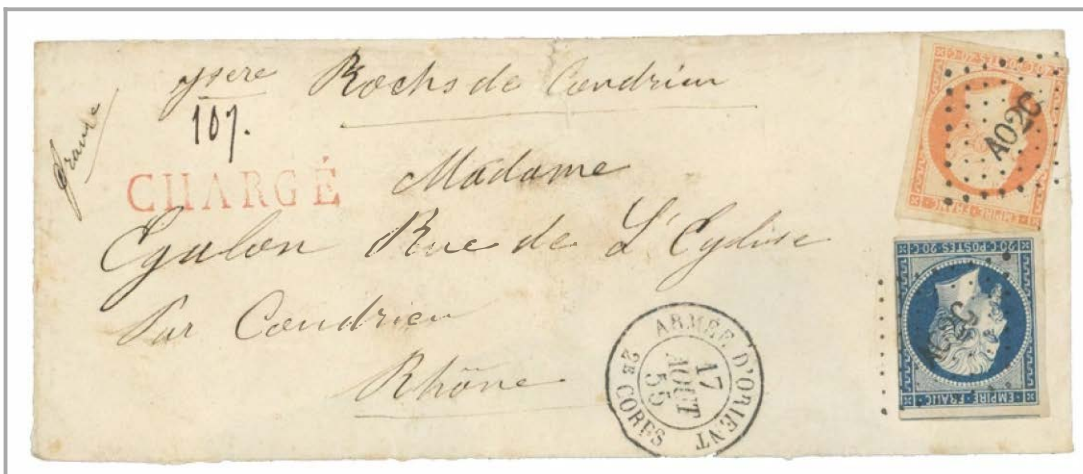 france
ysere Rochs de Condrieu
107.
CHARGÉ
Madame
Egalon Rue de L'Eglise
Par Condrieu
Rhône
ARMÉE D'ORIENT
17
AOUT
55
2E CORPS
AO2C
EMPIRE FRANC
20 C POSTES 20 C
EMPIRE FRANC